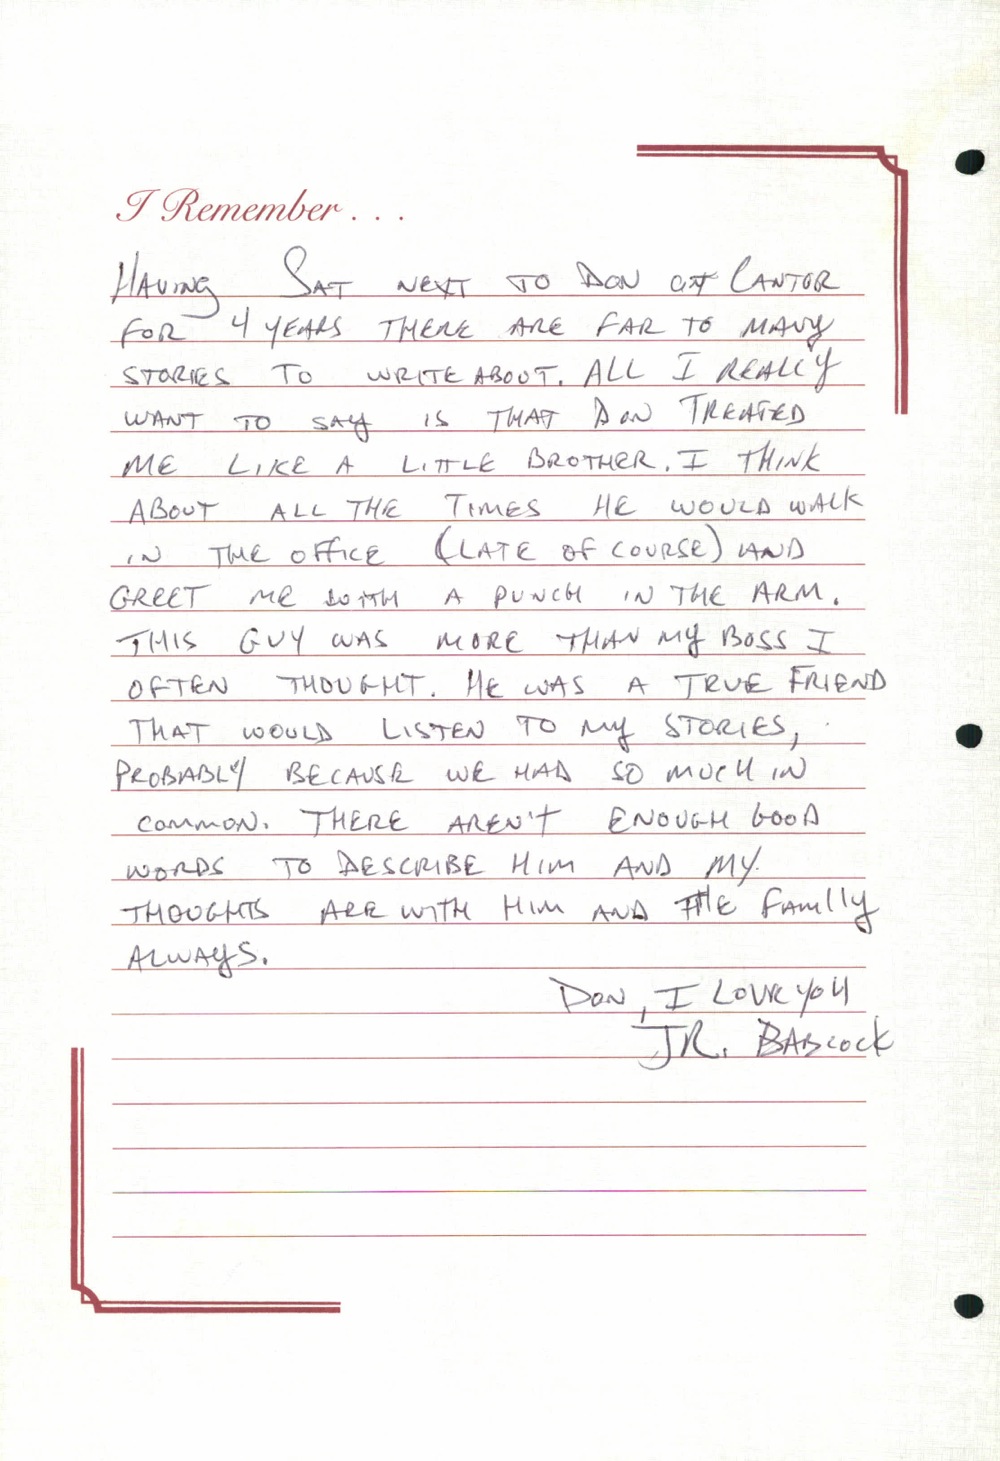 I Remember . . .
HAVING SAT NEXT TO DON at CANTOR
FOR 4 YEARS THERE ARE FAR TO MANY
STORIES TO WRITE ABOUT. ALL I REALLY
WANT TO SAY IS THAT DON TREATED
ME LIKE A LITTLE BROTHER. I THINK
ABOUT ALL THE TIMES HE WOULD WALK
IN THE OFFICE (LATE OF COURSE) AND
GREET ME WITH A PUNCH IN THE ARM.
THIS GUY WAS MORE THAN MY BOSS I
OFTEN THOUGHT. HE WAS A TRUE FRIEND
THAT WOULD LISTEN TO MY STORIES,
PROBABLY BECAUSE WE HAD SO MUCH IN
COMMON. THERE AREN'T ENOUGH GOOD
WORDS TO DESCRIBE HIM AND MY
THOUGHTS ARE WITH HIM AND THE FAMILY
ALWAYS.
DON, I LOVE YOU
JR. BABCOCK